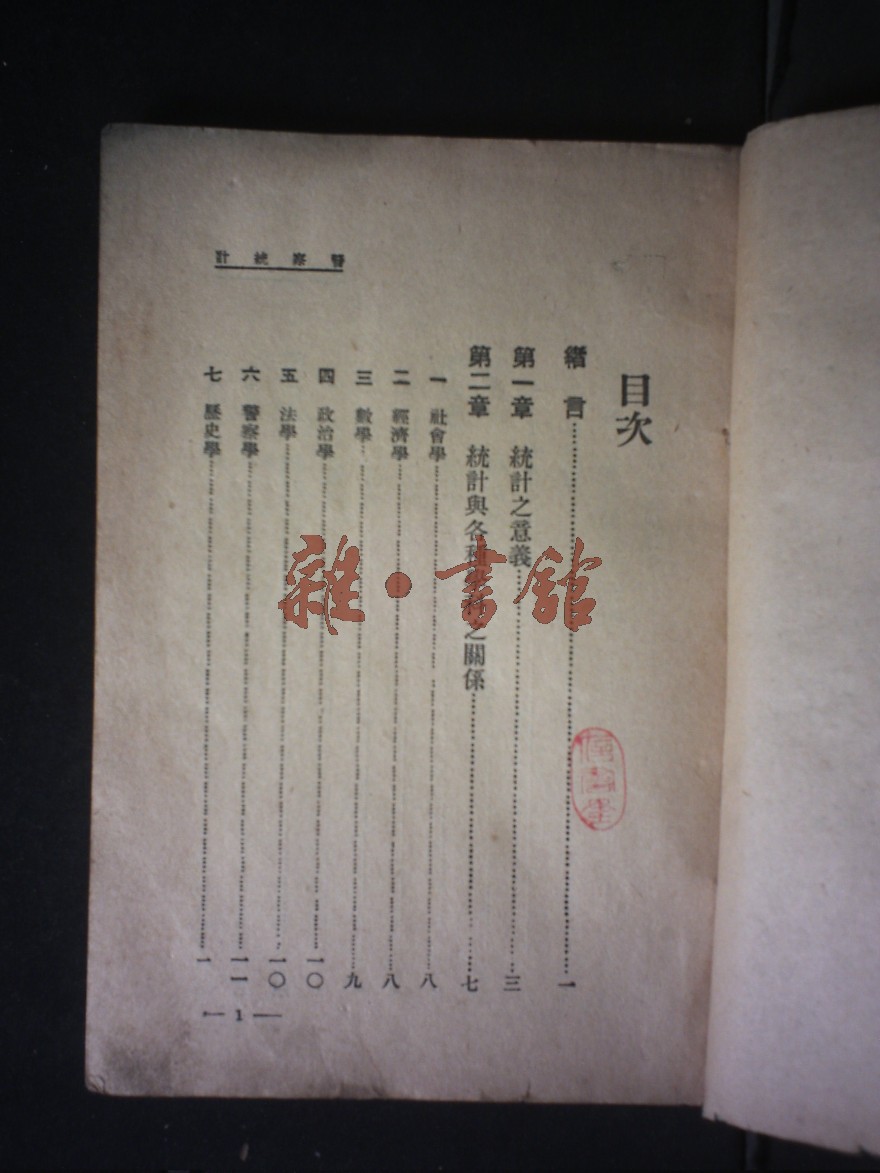 警察統計
目次
緒言 一
第一章 統計之意義 三
第二章 統計與各種學科之關係 七
一 社會學 八
二 經濟學 八
三 數學 九
四 政治學 一〇
五 法學 一〇
六 警察學 一一
七 歷史學 一
— 1 —
雜·書館